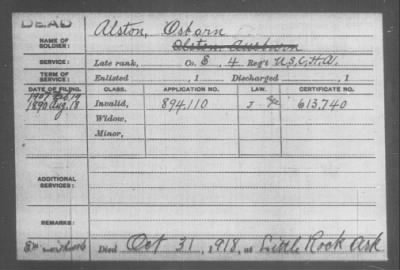 DEAD
NAME OF SOLDIER: Alston, Osborn
Olston Ausborn
SERVICE: Late rank, Co. E, 4 Reg't U.S.C.H.A.
TERM OF SERVICE: Enlisted , 1 Discharged , 1
DATE OF FILING. CLASS. APPLICATION NO. LAW. CERTIFICATE NO.
1907 Feb 19
1890 Aug. 18 Invalid, 894,110 J 613,740
Widow,
Minor,
ADDITIONAL SERVICES:
REMARKS:
Died Oct 31, 1918, at Little Rock Ark